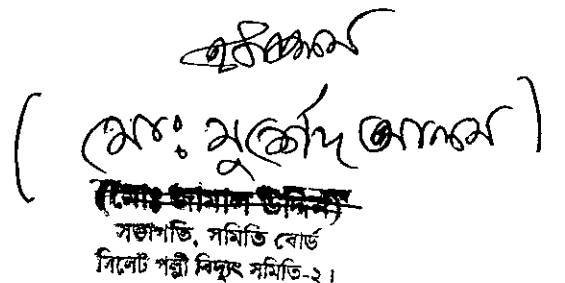 ( মোঃ মুর্শেদ আলম )
(মোঃ জামাল উদ্দিন)
সভাপতি, সমিতি বোর্ড
সিলেট পল্লী বিদ্যুৎ সমিতি-২।